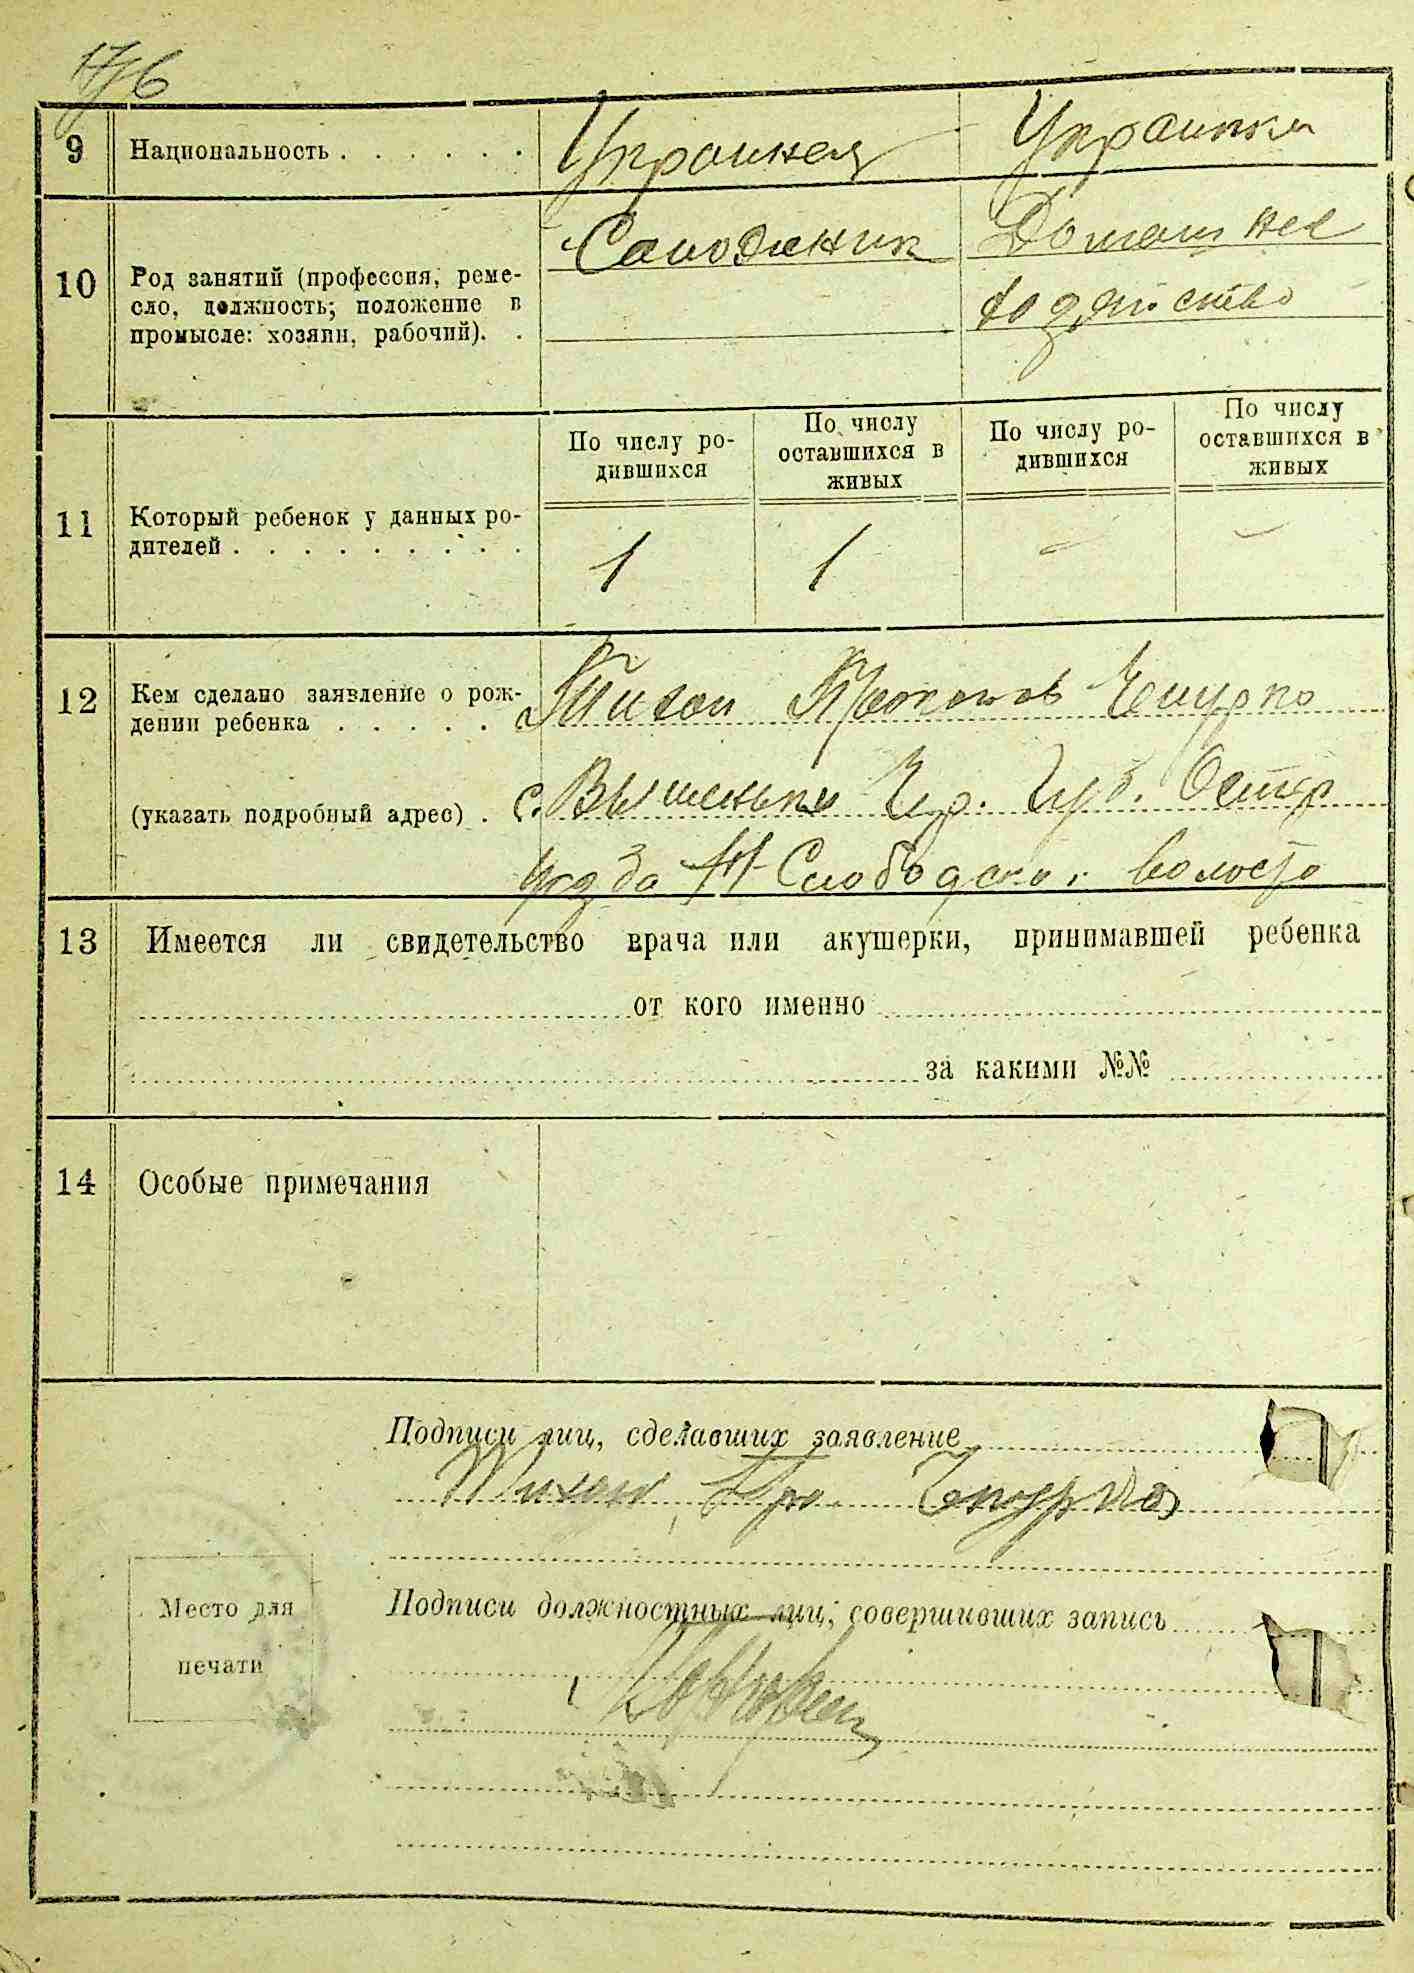 176
9 Национальность . . . . . . Украинец Украинка
10 Род занятий (профессия, реме-
сло, должность; положение в
промысле: хозяин, рабочий). .
Домашнее
хозяйство
По числу ро-
дившихся
По числу
оставшихся в
живых
По числу ро-
дившихся
По числу
оставшихся в
живых
11 Который ребенок у данных ро-
дителей . . . . . . . . . .
1 1 - -
12 Кем сделано заявление о рож-
дении ребенка . . . . . Тихон
(указать подробный адрес) . с. Вышеньки Чер. Губ. Остер
уезда Н-Слободской волости
13 Имеется ли свидетельство врача или акушерки, принимавшей ребенка
от кого именно
за какими №№
14 Особые примечания
Подписи лиц, сделавших заявление
Тихон Про.
Место для
печати
Подписи должностных лиц, совершивших запись